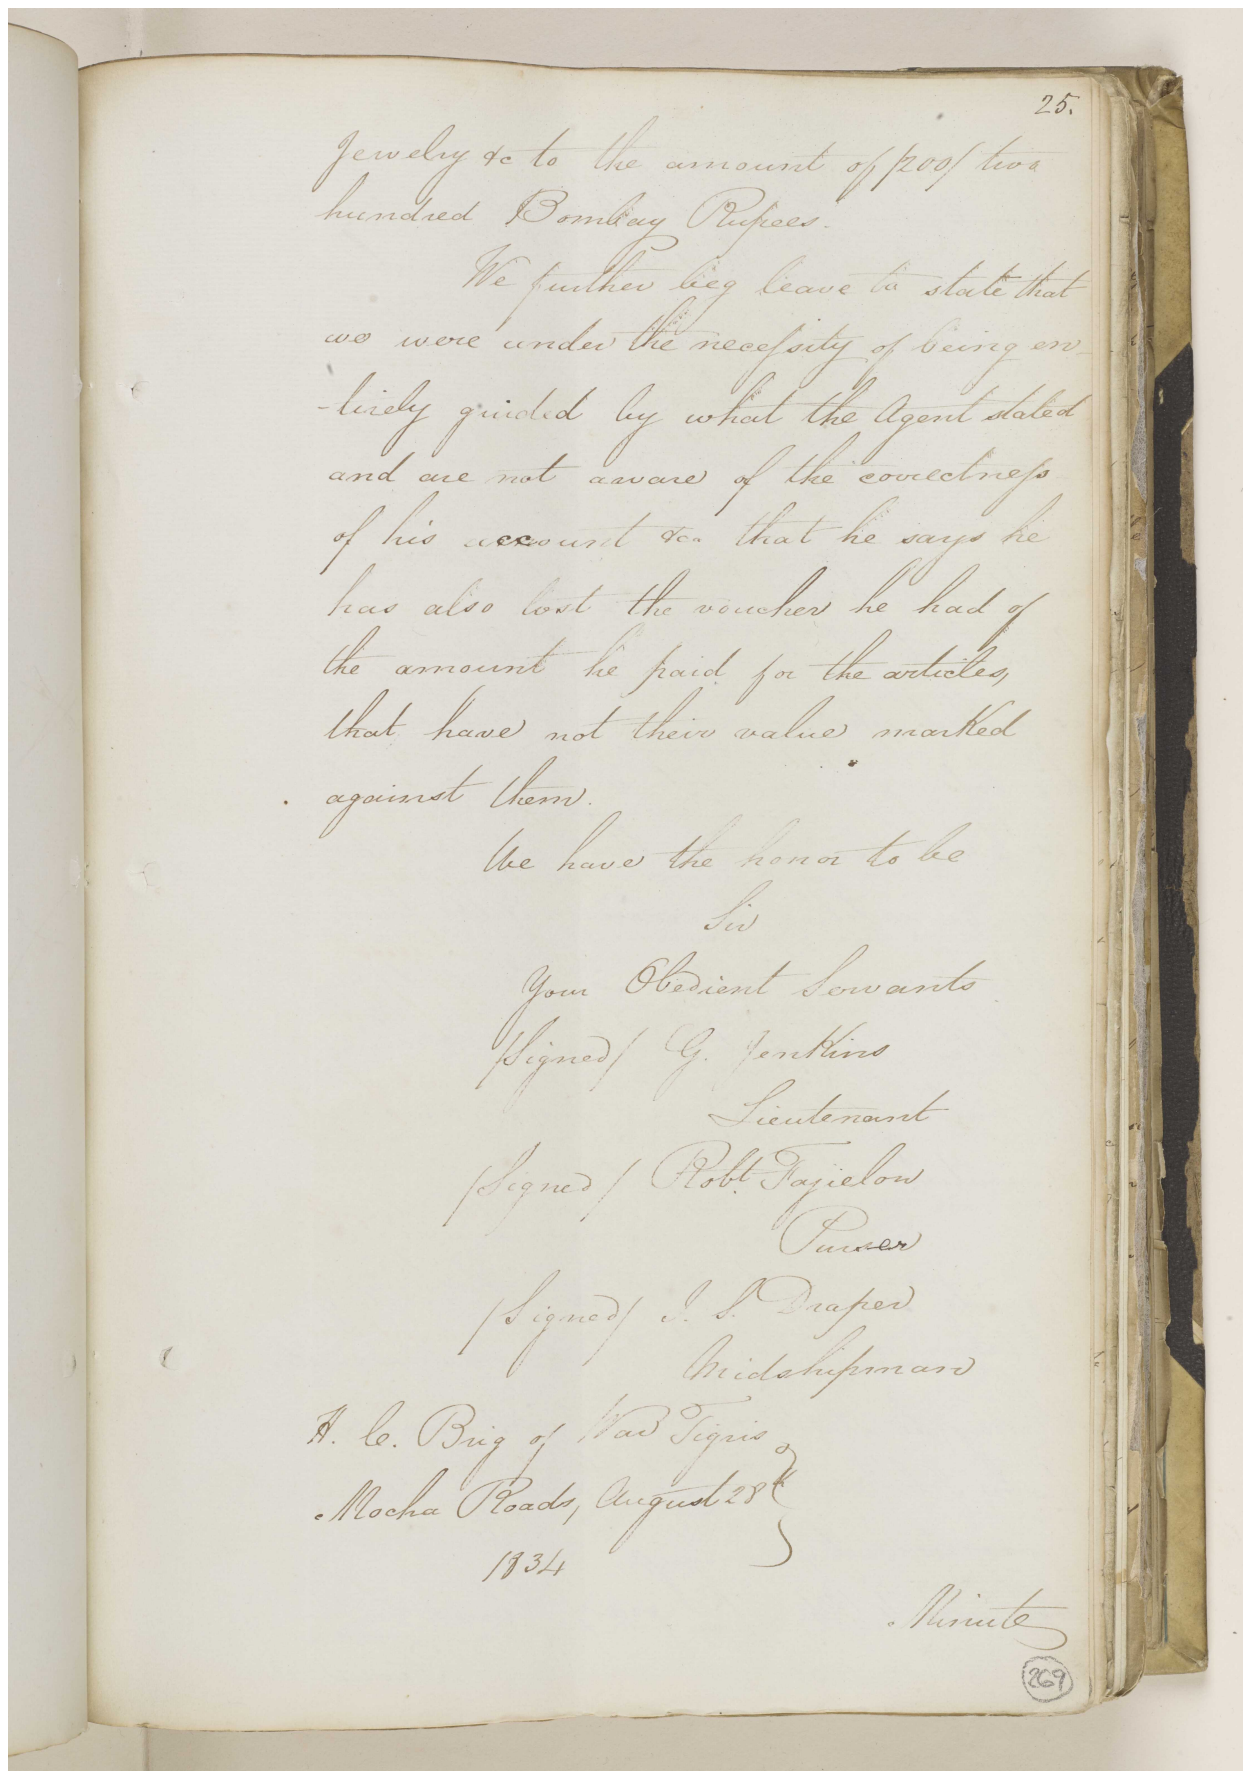 25.
Jewelry &c to the amount of /200/ two
hundred Bombay Rupees.
We further beg leave to state that
we were under the necessity of being en-
-tirely guided by what the Agent stated
and are not aware of the correctness
of his account &ca that he says he
has also lost the voucher he had of
the amount he paid for the articles,
that have not their value marked
against them.
We have the honor to be
Sir
Your Obedient Servants
/Signed/ G. Jenkins
Lieutenant
/Signed/ Robt.
Purser
/Signed/ J. S. Draper
Midshipman
H. C. Brig of War Tigris
Mocha Roads, August 28th
1834
Minute
269